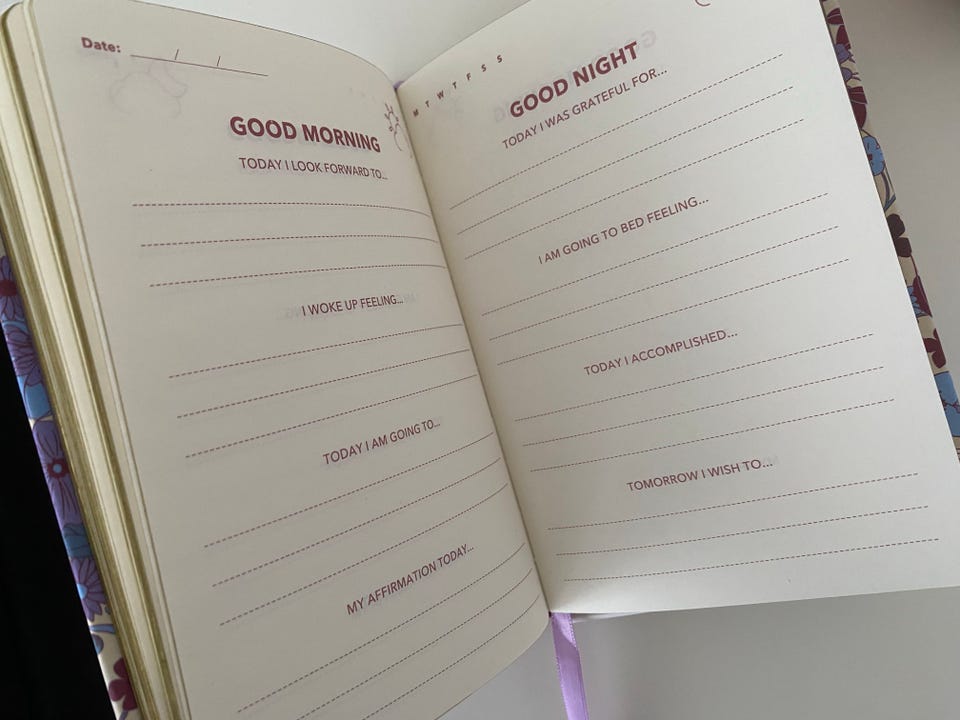 Date: / /
GOOD MORNING
TODAY I LOOK FORWARD TO...
I WOKE UP FEELING...
TODAY I AM GOING TO...
MY AFFIRMATION TODAY...
M T W T F S S
GOOD NIGHT
TODAY I WAS GRATEFUL FOR...
I AM GOING TO BED FEELING...
TODAY I ACCOMPLISHED...
TOMORROW I WISH TO...